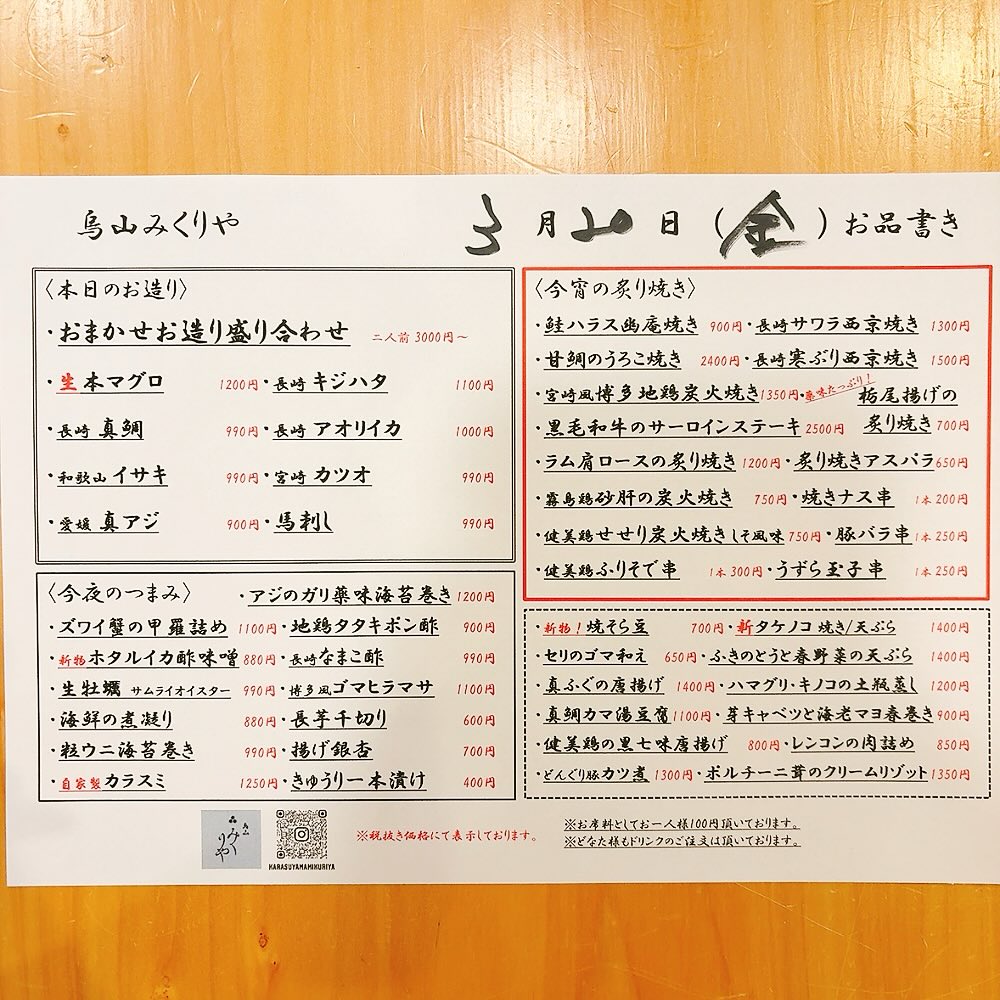 烏山みくりや
3月20日(金)お品書き
〈本日のお造り〉
・おまかせお造り盛り合わせ 二人前3000円～
・生本マグロ 1200円・長崎キジハタ 1100円
・長崎真鯛 990円・長崎アオリイカ 1000円
・和歌山イサキ 990円・宮崎カツオ 990円
・愛媛真アジ 900円・馬刺し 990円
〈今夜のつまみ〉 ・アジのガリ薬味海苔巻き 1200円
・ズワイ蟹の甲羅詰め 1100円・地鶏タタキポン酢 900円
・新物ホタルイカ酢味噌 880円・長崎なまこ酢 990円
・生牡蠣 サムライオイスター 990円・博多風ゴマヒラマサ 1100円
・海鮮の煮凝り 880円・長芋千切り 600円
・粒ウニ海苔巻き 990円・揚げ銀杏 700円
・自家製カラスミ 1250円・きゅうり一本漬け 400円
〈今宵の炙り焼き〉
・鮭ハラス幽庵焼き 900円・長崎サワラ西京焼き 1300円
・甘鯛のうろこ焼き 2400円・長崎寒ぶり西京焼き 1500円
・宮崎風博多地鶏炭火焼き 1350円・薬味たっぷり！栃尾揚げの
・黒毛和牛のサーロインステーキ 2500円 炙り焼き 700円
・ラム肩ロースの炙り焼き 1200円・炙り焼きアスパラ 650円
・霧島鶏砂肝の炭火焼き 750円・焼きナス串 1本200円
・健美鶏せせり炭火焼きしそ風味 750円・豚バラ串 1本250円
・健美鶏ふりそで串 1本300円・うずら玉子串 1本250円
・新物！焼そら豆 700円・新タケノコ 焼き/天ぷら 1400円
・セリのゴマ和え 650円・ふきのとうと春野菜の天ぷら 1400円
・真ふぐの唐揚げ 1400円・ハマグリ・キノコの土瓶蒸し 1200円
・真鯛カマ湯豆腐 1100円・芽キャベツと海老マヨ春巻き 900円
・健美鶏の黒七味唐揚げ 800円・レンコンの肉詰め 850円
・どんぐり豚カツ煮 1300円・ポルチーニ茸のクリームリゾット 1350円
烏山みくりや
KARASUYAMAMIKURIYA
※税抜き価格にて表示しております。
※お席料としてお一人様100円頂いております。
※どなた様もドリンクのご注文は頂いております。